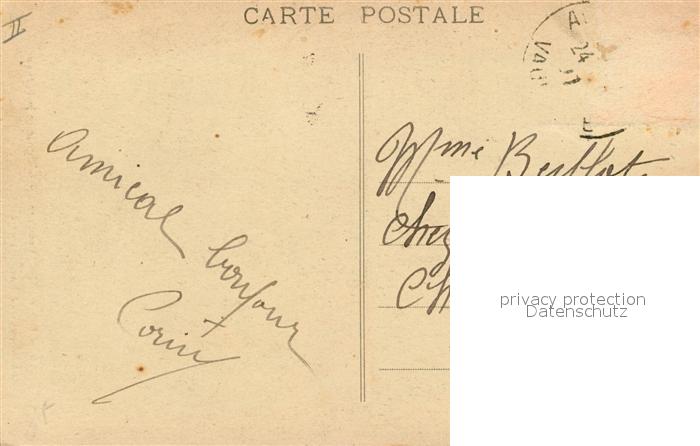 II
CARTE POSTALE
24
11
Amical
bonjour
Mme
Chez
privacy protection
Datenschutz